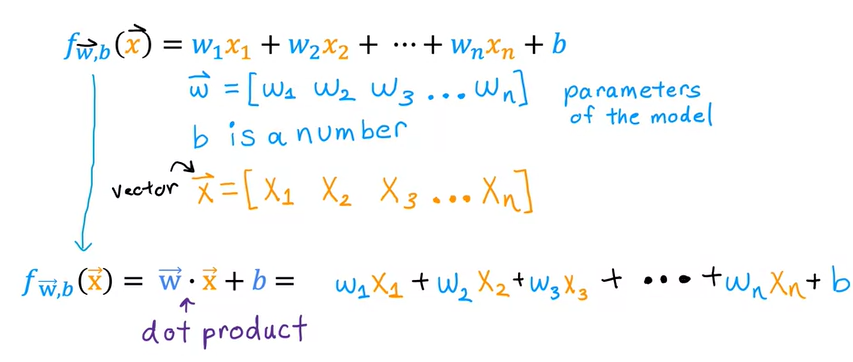 f_w⃗,b(x⃗) = w₁x₁ + w₂x₂ + ⋯ + wₙxₙ + b
w⃗ = [w₁ w₂ w₃ ... wₙ] parameters
of the model
b is a number
vector x⃗ = [x₁ x₂ x₃ ... xₙ]
f_w⃗,b(x⃗) = w⃗ · x⃗ + b = w₁x₁ + w₂x₂ + w₃x₃ + ⋯ + wₙxₙ + b
dot product